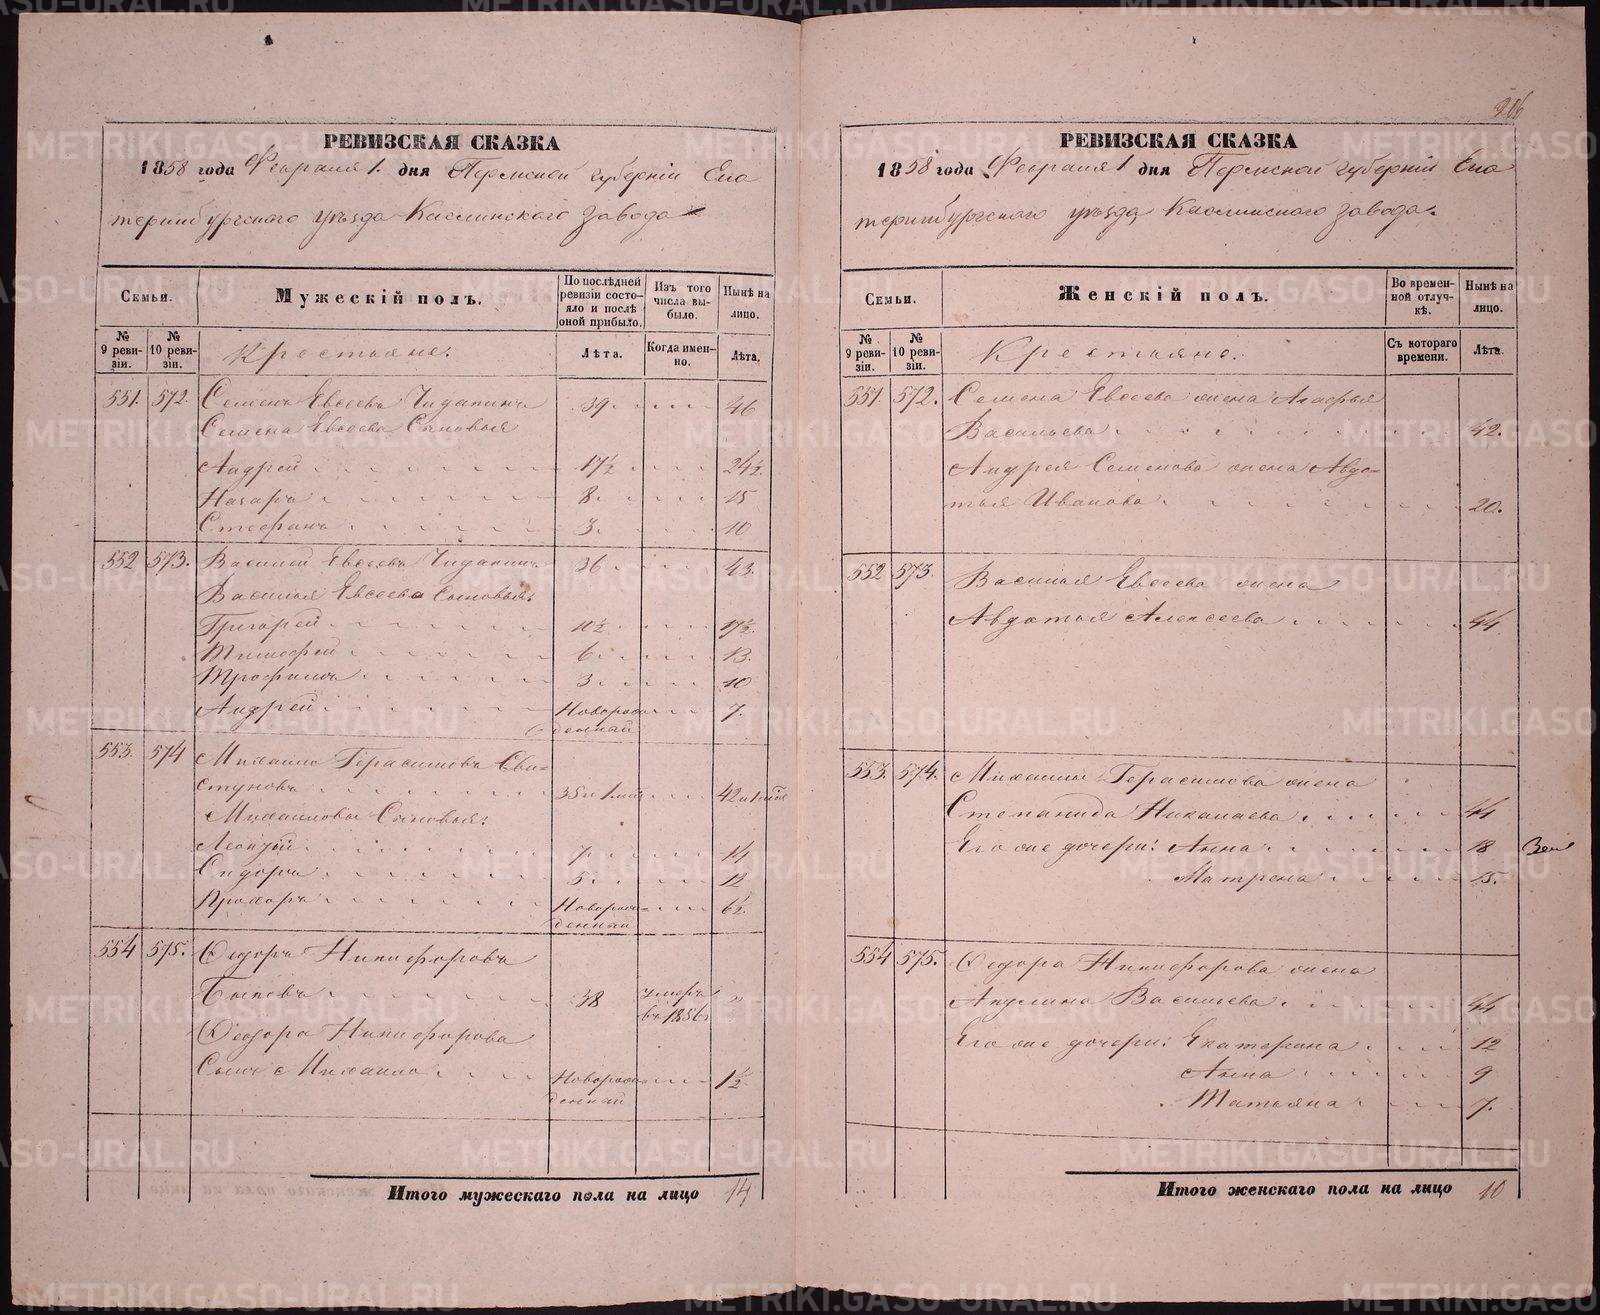 РЕВИЗСКАЯ СКАЗКА
1858 года Февраля 1. дня Пермской губерніи Ека
теринбургского уѣзда Каслинского завода
Семьи.
Мужескій полъ.
По послѣдней ревизіи состояло и послѣ оной прибыло.
Изъ того числа выбыло.
Нынѣ на лицо.
№ 9 ревизіи.
№ 10 ревизіи.
Крестьяне:
Лѣта.
Когда именно.
Лѣта.
551. 572. Семенъ Евсеевъ 39 46
Семена Евсеева Сыновья
Андрей 17½ 24½
Назаръ 8 15
Стефанъ 3 10
552 573. Василей Евсеевъ 36 43.
Василья Евсеева Сыновья:
Григорей 10½ 17½
Тимофей 6 13.
Трофимъ 3 10
Андрей Новорож 7.
денный
553. 574 Михаило Герасимовъ Сви-
стуновъ 35 и 1 мѣс 42 и 1 мѣс
Михаиловы Сыновья:
Леонтий 7 14
Сидоръ 5 12
Прохоръ Новорож- 6½
денный
554 575. Ѳедоръ Никифоровъ
38 умеръ "
въ 1856 г
Ѳедора Никифорова
Сынъ Михаило Новорож 1½
денный
Итого мужескаго пола на лицо 14
206
РЕВИЗСКАЯ СКАЗКА
1858 года Февраля 1 дня Пермской губерніи Ека
теринбургского уѣзда Каслинского завода.
Семьи.
Женскій полъ.
Во временной отлучкѣ.
Нынѣ на лицо.
№ 9 ревизіи.
№ 10 ревизіи.
Крестьяне.
Съ котораго времени.
Лѣта.
551. 572. Семена Евсеева жена Агафья
Васильева 42.
Андрея Семенова жена Авдо-
тья Иванова 20.
552 573. Василья Евсеева жена
Авдотья Алексеева 44
553. 574. Михаилы Герасимова жена
Степанида Николаева 44
Его же дочери: Анна 18
Матрена 15.
554 575. Ѳедора Никифорова жена
Акулина Васильева 44
Его же дочери: Екатерина 12
Анна 9
Татьяна 7.
Итого женскаго пола на лицо 10
METRIKI.GASO-URAL.RU